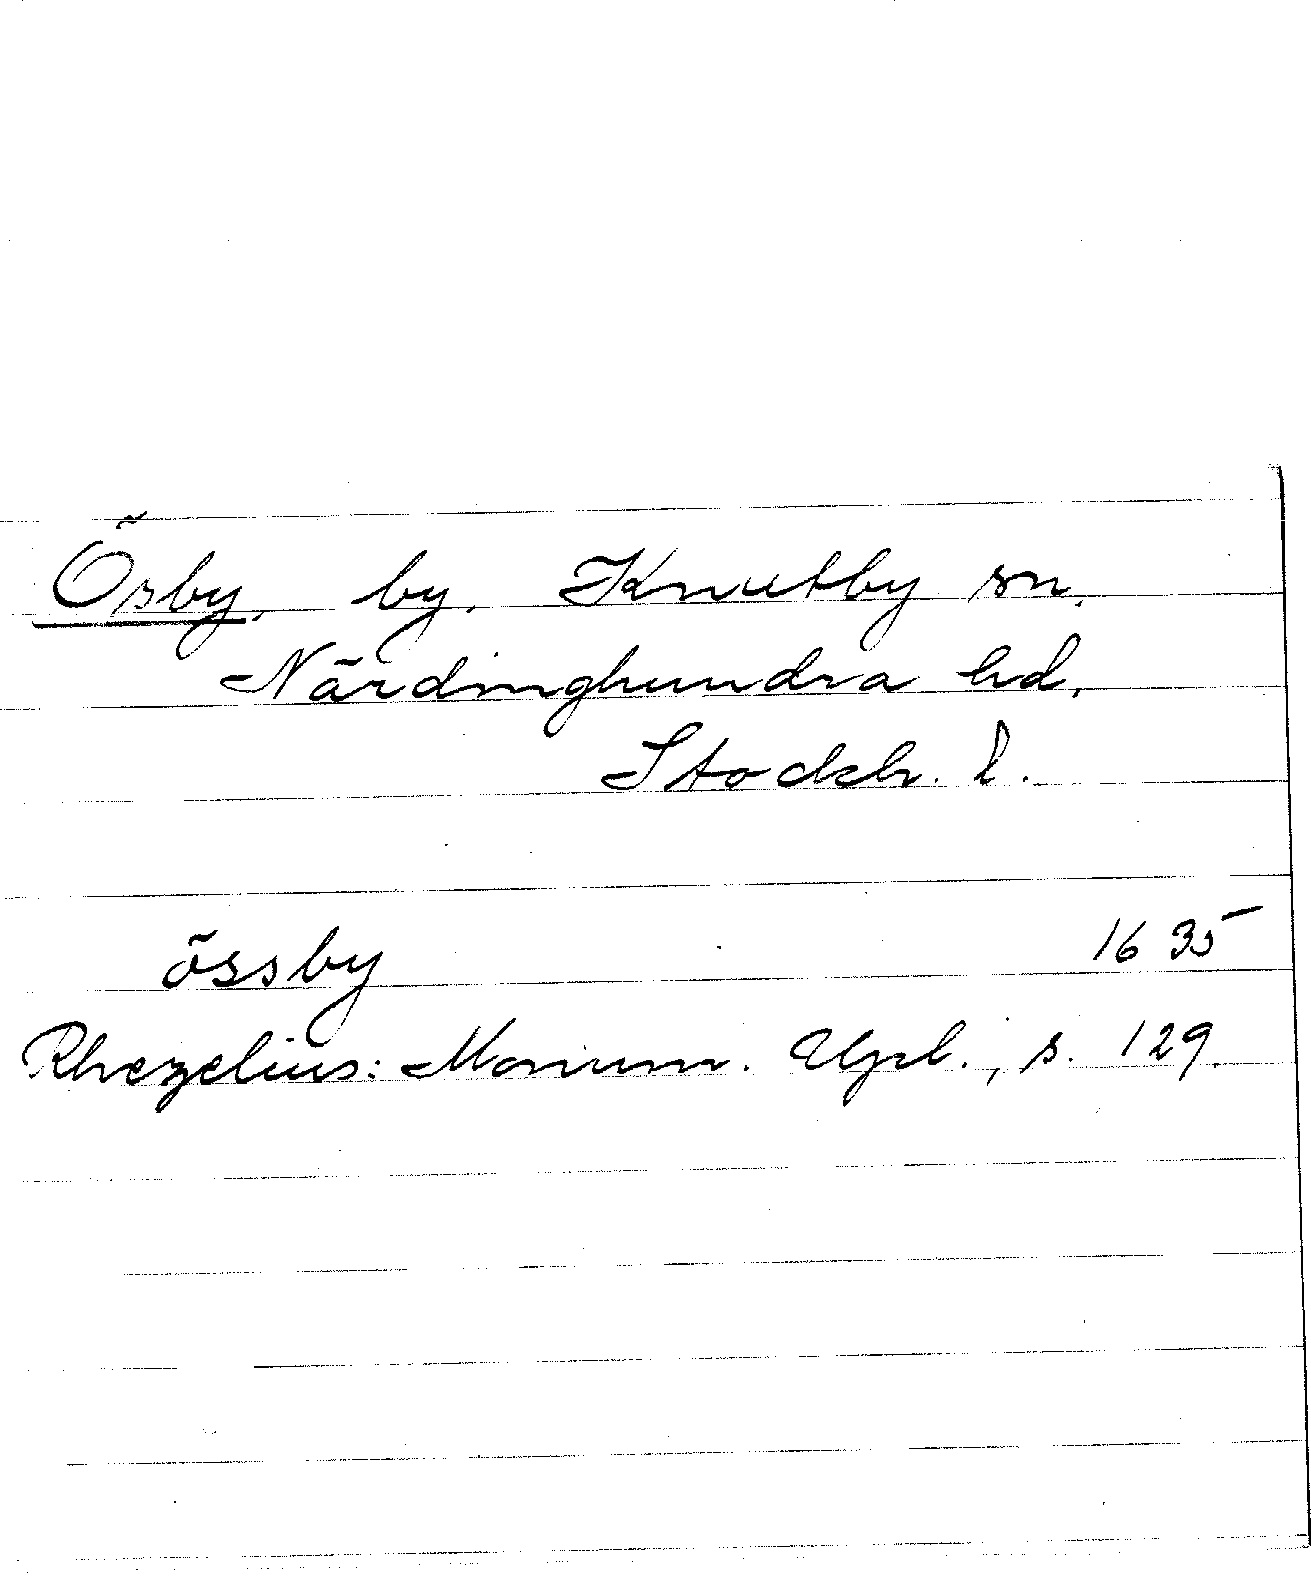 Ösby, by, Knutby sn,
Närdinghundra hd,
Stockh. l.
össby 1635
Rhezelius: Monum. Upl., s. 129.